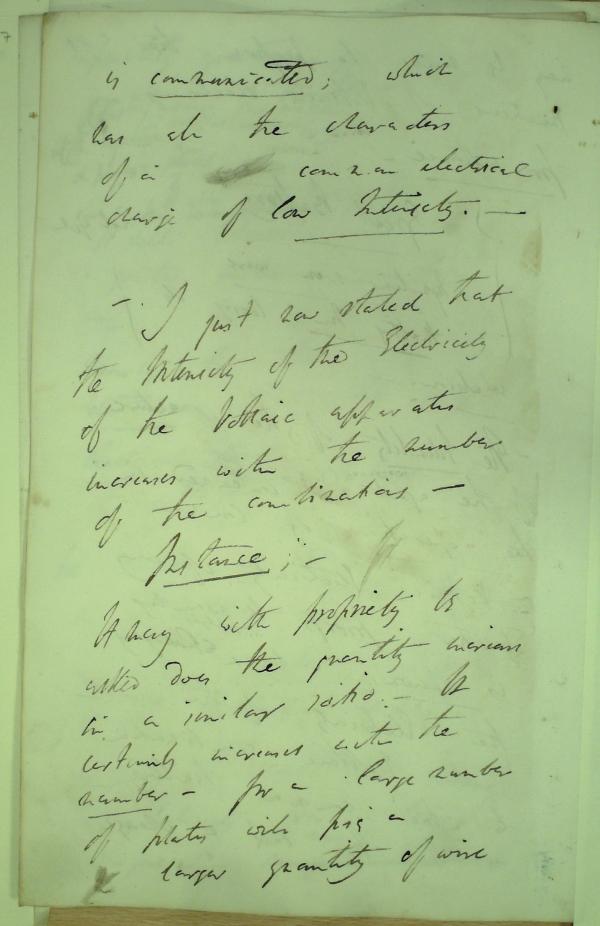 is communicated; which
has all the characters
of a common electrical
charge of low Intensity. —
— I just now stated that
the Intensity of the Electricity
of the Voltaic apparatus
increases with the number
of the combinations —
Instance; —
It may with propriety be
asked does the quantity increase
in a similar ratio. — It
certainly increases with the
number — for a large number
of plates will fuse a
larger quantity of wire